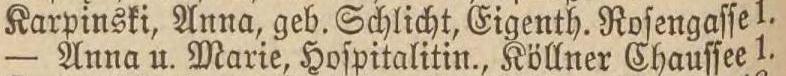 Karpinski, Anna, geb. Schlicht, Eigenth. Rosengasse 1.
— Anna u. Marie, Hospitalitin., Köllner Chaussee 1.